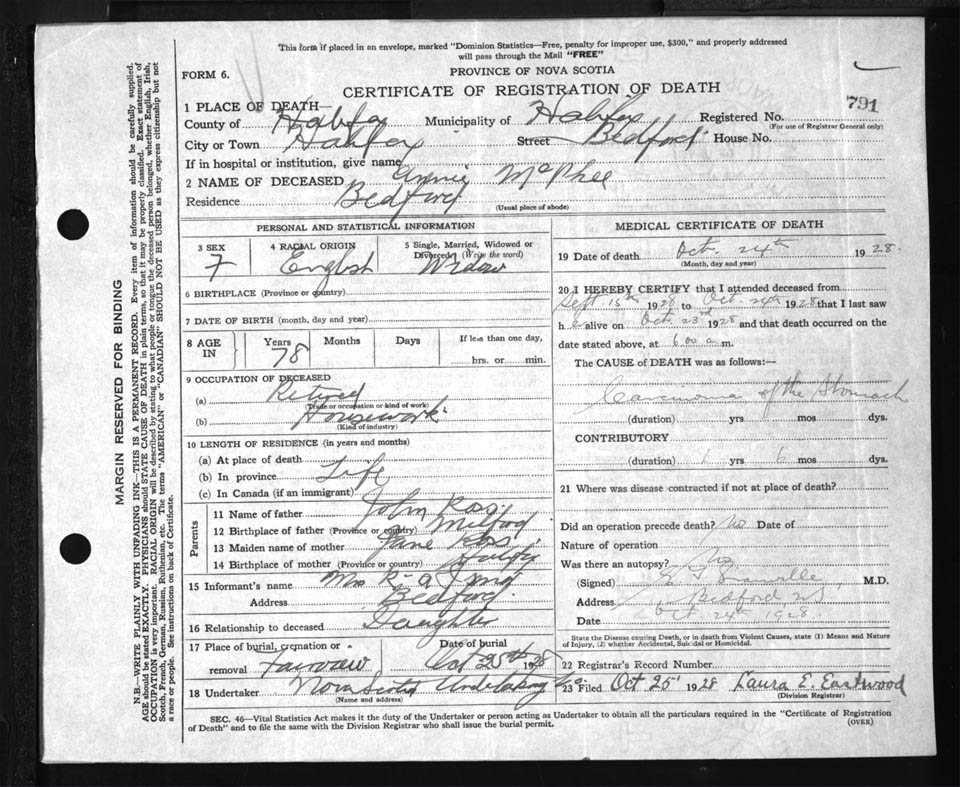 This form if placed in an envelope, marked "Dominion Statistics—Free, penalty for improper use, $300," and properly addressed
will pass through the Mail "FREE"
FORM 6.
PROVINCE OF NOVA SCOTIA
CERTIFICATE OF REGISTRATION OF DEATH
791
1 PLACE OF DEATH—
County of Halifax Municipality of Halifax Registered No.
(For use of Registrar General only)
City or Town Halifax Street Bedford House No.
If in hospital or institution, give name
2 NAME OF DECEASED Annie McPhee
Residence Bedford
(Usual place of abode)
PERSONAL AND STATISTICAL INFORMATION
3 SEX 4 RACIAL ORIGIN 5 Single, Married, Widowed or
Divorced (Write the word)
F English Widow
6 BIRTHPLACE (Province or country)
7 DATE OF BIRTH (month, day and year)
8 AGE IN Years Months Days If less than one day,
78 hrs. or min.
9 OCCUPATION OF DECEASED
(a) Retired
(Trade or occupation or kind of work)
(b) Housework
(Kind of industry)
10 LENGTH OF RESIDENCE (in years and months)
(a) At place of death
(b) In province Life
(c) In Canada (if an immigrant)
Parents
11 Name of father John
12 Birthplace of father (Province or country) Milford
13 Maiden name of mother Jane
14 Birthplace of mother (Province or country)
15 Informant's name Mrs
Address Bedford
16 Relationship to deceased Daughter
17 Place of burial, cremation or
removal Fairview
Date of burial
Oct 25th 1928
18 Undertaker Nova Scotia Undertaking Co.
(Name and address)
MEDICAL CERTIFICATE OF DEATH
19 Date of death Oct. 24th 1928.
(Month, day and year)
20 I HEREBY CERTIFY that I attended deceased from
Sept. 15th 1928 to Oct. 24th 1928 that I last saw
her alive on Oct. 23rd 1928 and that death occurred on the
date stated above, at 6.00 a.m.
The CAUSE OF DEATH was as follows:—
Carcinoma of the Stomach
(duration) yrs mos dys.
CONTRIBUTORY
(duration) 1 yrs 6 mos dys.
21 Where was disease contracted if not at place of death?
Did an operation precede death? No Date of
Nature of operation
Was there an autopsy? No
(Signed) Granville M.D.
Address Bedford NS
Date Oct 24th 1928
State the Disease causing Death, or in death from Violent Causes, state (1) Means and Nature
of Injury, (2) whether Accidental, Suicidal or Homicidal.
22 Registrar's Record Number
23 Filed Oct 25 1928 Laura E. Eastwood
(Division Registrar)
SEC. 46—Vital Statistics Act makes it the duty of the Undertaker or person acting as Undertaker to obtain all the particulars required in the "Certificate of Registration
of Death" and to file the same with the Division Registrar who shall issue the burial permit. (OVER)
MARGIN RESERVED FOR BINDING
N.B.—WRITE PLAINLY WITH UNFADING INK—THIS IS A PERMANENT RECORD. Every item of information should be carefully supplied.
AGE should be stated EXACTLY. PHYSICIANS should STATE CAUSE OF DEATH in plain terms, so that it may be properly classified. Exact statement of
OCCUPATION is very important. RACIAL ORIGIN will be described by stating to what people or tongue the deceased person belonged, whether English, Irish,
Scotch, French, German, Russian, Ruthenian, etc. The terms "AMERICAN" or "CANADIAN" SHOULD NOT BE USED as they express citizenship but not
a race or people. See instructions on back of Certificate.